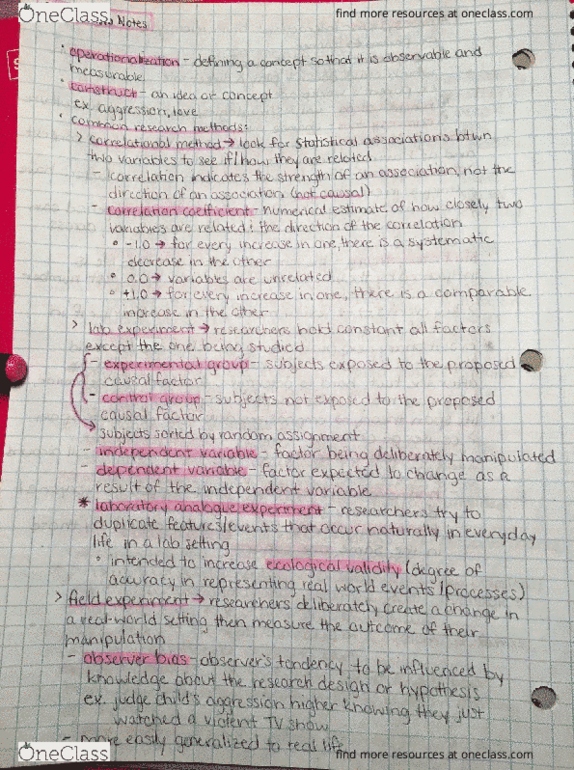 OneClass
find more resources at oneclass.com
Notes
• operationalization - defining a concept so that it is observable and
measurable
• construct - an idea or concept
ex. aggression, love
• common research methods:
> correlational method → look for statistical associations btwn
two variables to see if/how they are related
- correlation indicates the strength of an association, not the
direction of an association (not causal)
- correlation coefficient - numerical estimate of how closely two
variables are related; the direction of the correlation
° -1.0 → for every increase in one, there is a systematic
decrease in the other
° 0.0 → variables are unrelated
° +1.0 → for every increase in one, there is a comparable
increase in the other
> lab experiment → researchers hold constant all factors
except the one being studied
- experimental group - subjects exposed to the proposed
causal factor
- control group - subjects not exposed to the proposed
causal factor
subjects sorted by random assignment
- independent variable - factor being deliberately manipulated
- dependent variable - factor expected to change as a
result of the independent variable
* laboratory analogue experiment - researchers try to
duplicate features/events that occur naturally in everyday
life in a lab setting
° intended to increase ecological validity (degree of
accuracy in representing real world events/processes)
> field experiment → researchers deliberately create a change in
a real-world setting then measure the outcome of their
manipulation
- observer bias - observer's tendency to be influenced by
knowledge about the research design or hypothesis
ex. judge child's aggression higher knowing they just
watched a violent TV show
- more easily generalized to real life
OneClass
find more resources at oneclass.com